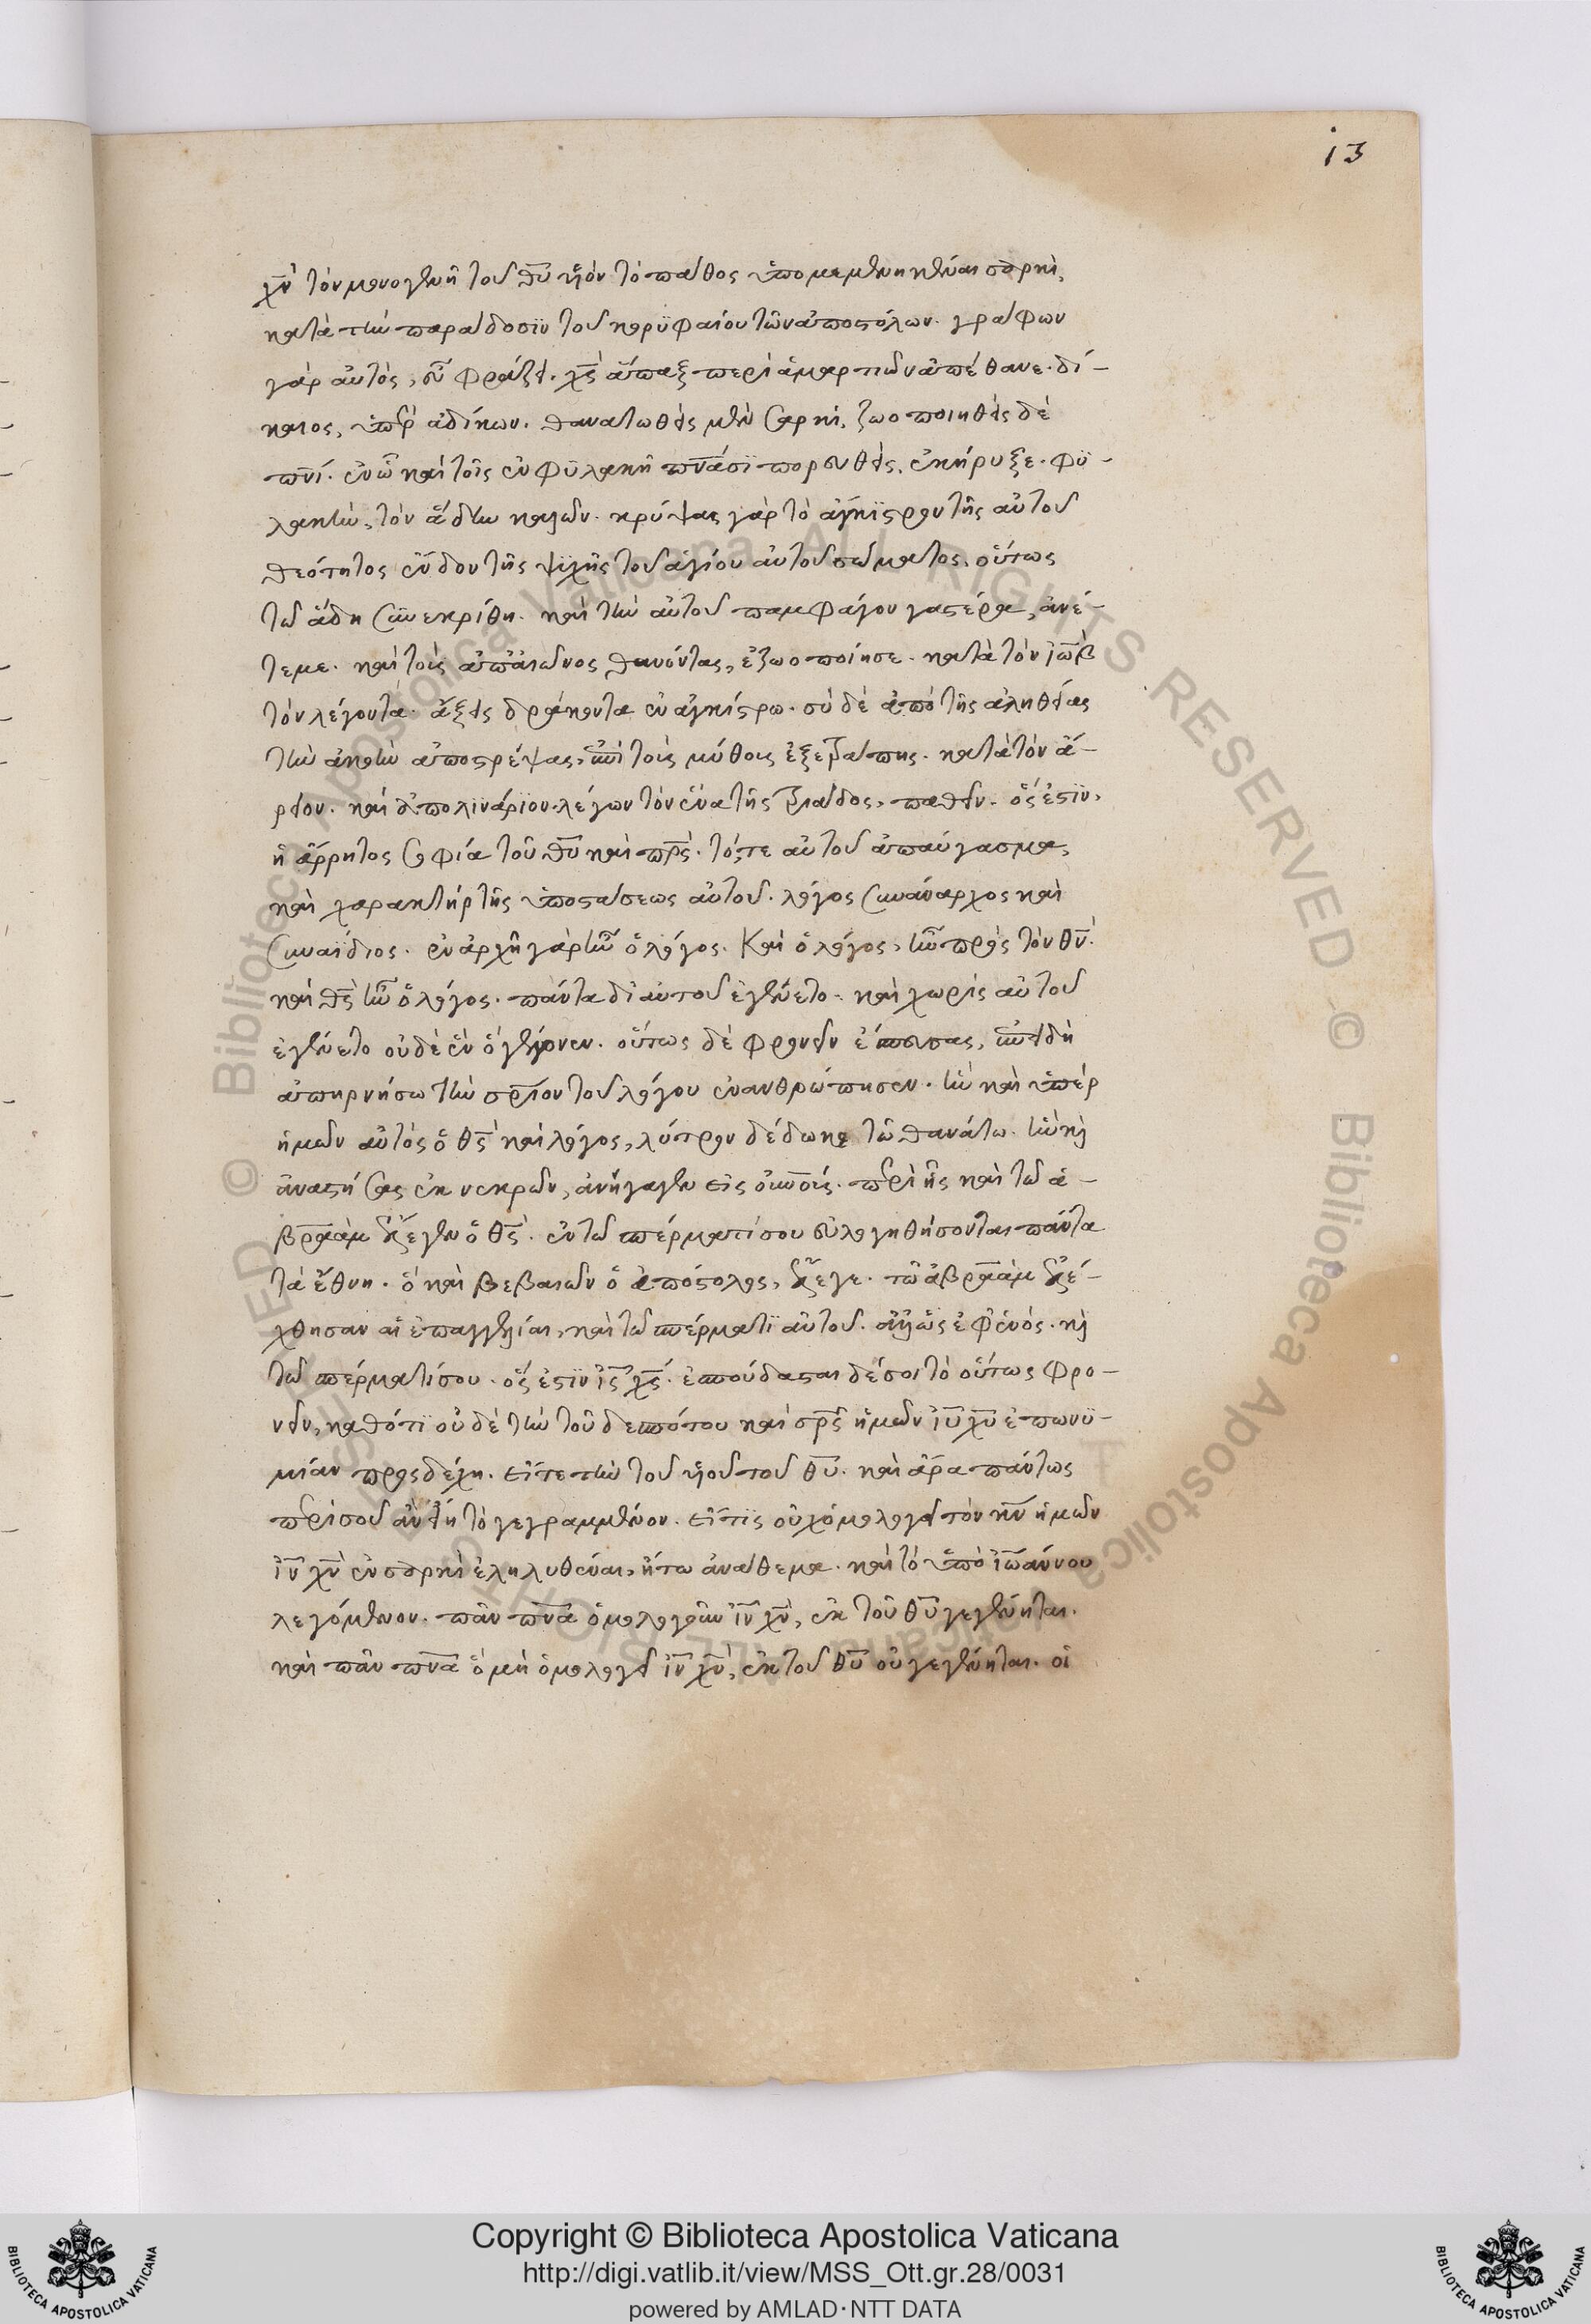 13
χν̅ τὸν μονογενῆ τοῦ θυ̅ υἱὸν τὸ πάθος ὑπομεμενηκέναι σαρκὶ,
κατὰ τὴν παράδοσϊν τοῦ κορυφαίου τῶν ἀποστόλων. γράφων
γὰρ αὐτὸς, οὕτω φράζει. χς̅ ἅπαξ περὶ ἁμαρτιῶν ἀπέθανε. δί-
καιος, ὑπὲρ ἀδίκων. θανατωθεὶς μὲν σαρκὶ, ζωοποιηθεὶς δὲ
πνι̅. ἐν ᾧ καὶ τοῖς ἐν φυλακῆ πνα̅σϊ πορευθεὶς, ἐκήρυξε. φϋ-
λακὴν, τὸν ἅδην καλῶν. κρύψας γὰρ τὸ ἄγκϊστρον τῆς αὐτοῦ
θεότητος ἔνδον τῆς ψϋχῆς τοῦ ἁγίου αὐτοῦ σώματος, οὕτως
τῶ ἅδη συνεκρίθη. καὶ τὴν αὐτοῦ παμφάγον γαστέρα, ἀνέ-
τεμε. καὶ τοὺς ἀπ' αἰῶνος θανόντας, ἐζωοποίησε. κατὰ τὸν ἰὼβ
τὸν λέγοντα. ἄξεις δράκοντα ἐν ἀγκίστρω. σὺ δὲ ἀπὸ τῆς ἀληθείας
τὴν ἀκοὴν ἀποστρέψας, ἐπὶ τοὺς μύθους ἐξετράπης. κατὰ τὸν ἄ-
ρειον. καὶ ἀπολϊνάρϊον. λέγων τὸν ἕνα τῆς τριάδος, παθεῖν. ὅς ἐστϊν,
ἡ ἄρρητος σοφία τοῦ θυ̅ καὶ πρς̅. τό, τε αὐτοῦ ἀπαύγασμα,
καὶ χαρακτὴρ τῆς ὑποστάσεως αὐτοῦ. λόγος συνάναρχος καὶ
συναΐδιος. ἐν ἀρχῆ γὰρ ἦν ὁ λόγος. Καὶ ὁ λόγος, ἦν πρὸς τὸν θν̅.
καὶ θς̅ ἦν ὁ λόγος. πάντα δι' αὐτοῦ ἐγένετο. καὶ χωρὶς αὐτοῦ
ἐγένετο οὐδὲ ἓν ὃ γέγονεν. οὕτως δὲ φρονεῖν ἔσπευσας, ἐπειδὴ
ἀπηρνήσω τὴν σρ̅ιον τοῦ λόγου ἐνανθρώπησιν. ἣν καὶ ὑπὲρ
ἡμῶν αὐτὸς ὁ θς̅ καὶ λόγος, λύτρον δέδωκε τῶ θανάτω. ἣν κὶ
ἀναστήσας ἐκ νεκρῶν, ἀνήγαγεν εἰς οὐνοὺς. περὶ ἧς καὶ τῶ ἀ-
βραὰμ ἔλεγεν ὁ θς̅. ἐν τῶ σπέρματί σου εὐλογηθήσονται πάντα
τὰ ἔθνη. ὃ καὶ βεβαιῶν ὁ ἀπόστολος, ἔλεγε. τῶ ἀβραὰμ ἐλέ-
χθησαν αἱ ἐπαγγελίαι, καὶ τῶ σπέρματϊ αὐτοῦ. ἀλλ' ὡς ἐφ' ἑνός. κὶ
τῶ σπέρματί σου. ὅς ἐστϊν ις̅ χς̅. ἐσπούδασται δέ σοι τὸ οὕτως φρο-
νεῖν, καθότϊ οὐδὲ τὴν τοῦ δεσπότου καὶ σρς̅ ἡμῶν ιυ̅ χυ̅ ἐπωνϋ-
μίαν προσδέχη. εἴτε τὴν τοῦ υἱοῦ τοῦ θυ̅. καὶ ἄρα πάντως
περὶ σοῦ ἂν εἴη τὸ γεγραμμένον. εἴ τϊς οὐχ ὁμολογεῖ τὸν κν̅ ἡμῶν
ιν̅ χν̅ ἐν σαρκὶ ἐληλυθέναι, ἤτω ἀνάθεμα. καὶ τὸ ὑπὸ ἰωάννου
λεγόμενον. πᾶν πνα̅ ὁμολογοῦν ιν̅ χν̅, ἐκ τοῦ θυ̅ γεγένηται.
καὶ πᾶν πνα̅ ὃ μὴ ὁμολογεῖ ιν̅ χν̅, ἐκ τοῦ θυ̅ οὐ γεγένηται. οἱ
© Biblioteca Apostolica Vaticana ALL RIGHTS RESERVED © Biblioteca Apostolica Vaticana ALL RIGHTS RESERVED
Copyright © Biblioteca Apostolica Vaticana
http://digi.vatlib.it/view/MSS_Ott.gr.28/0031
powered by AMLAD·NTT DATA
BIBLIOTECA APOSTOLICA VATICANA
BIBLIOTECA APOSTOLICA VATICANA